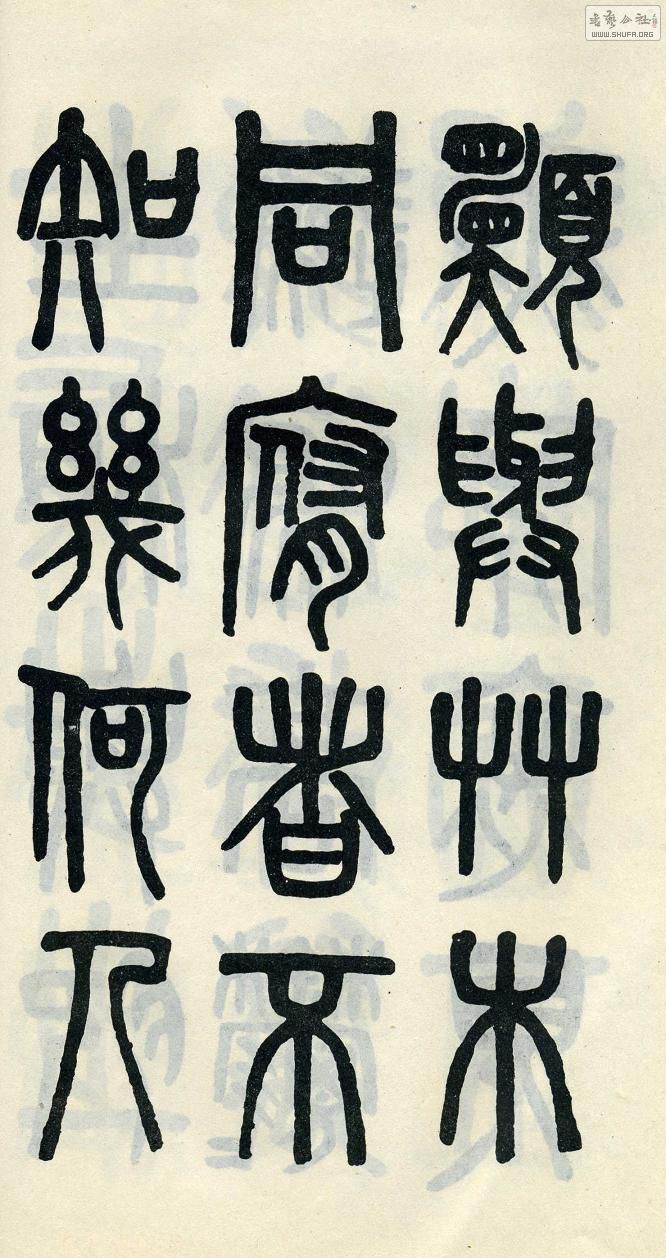 與艸木
同腐者不
知幾何人
書藝公社
WWW.SHUFA.ORG